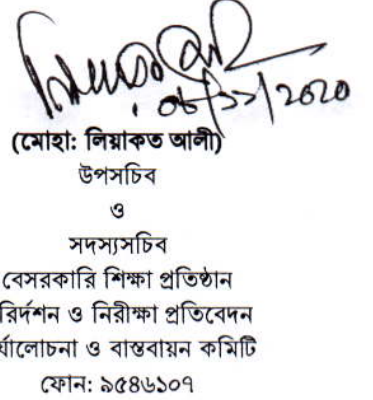 ০৮/১১/২০২০
(মোহা: লিয়াকত আলী)
উপসচিব
ও
সদস্যসচিব
বেসরকারি শিক্ষা প্রতিষ্ঠান
রিদর্শন ও নিরীক্ষা প্রতিবেদন
র্যালোচনা ও বাস্তবায়ন কমিটি
ফোন: ৯৫৪৬১০৭